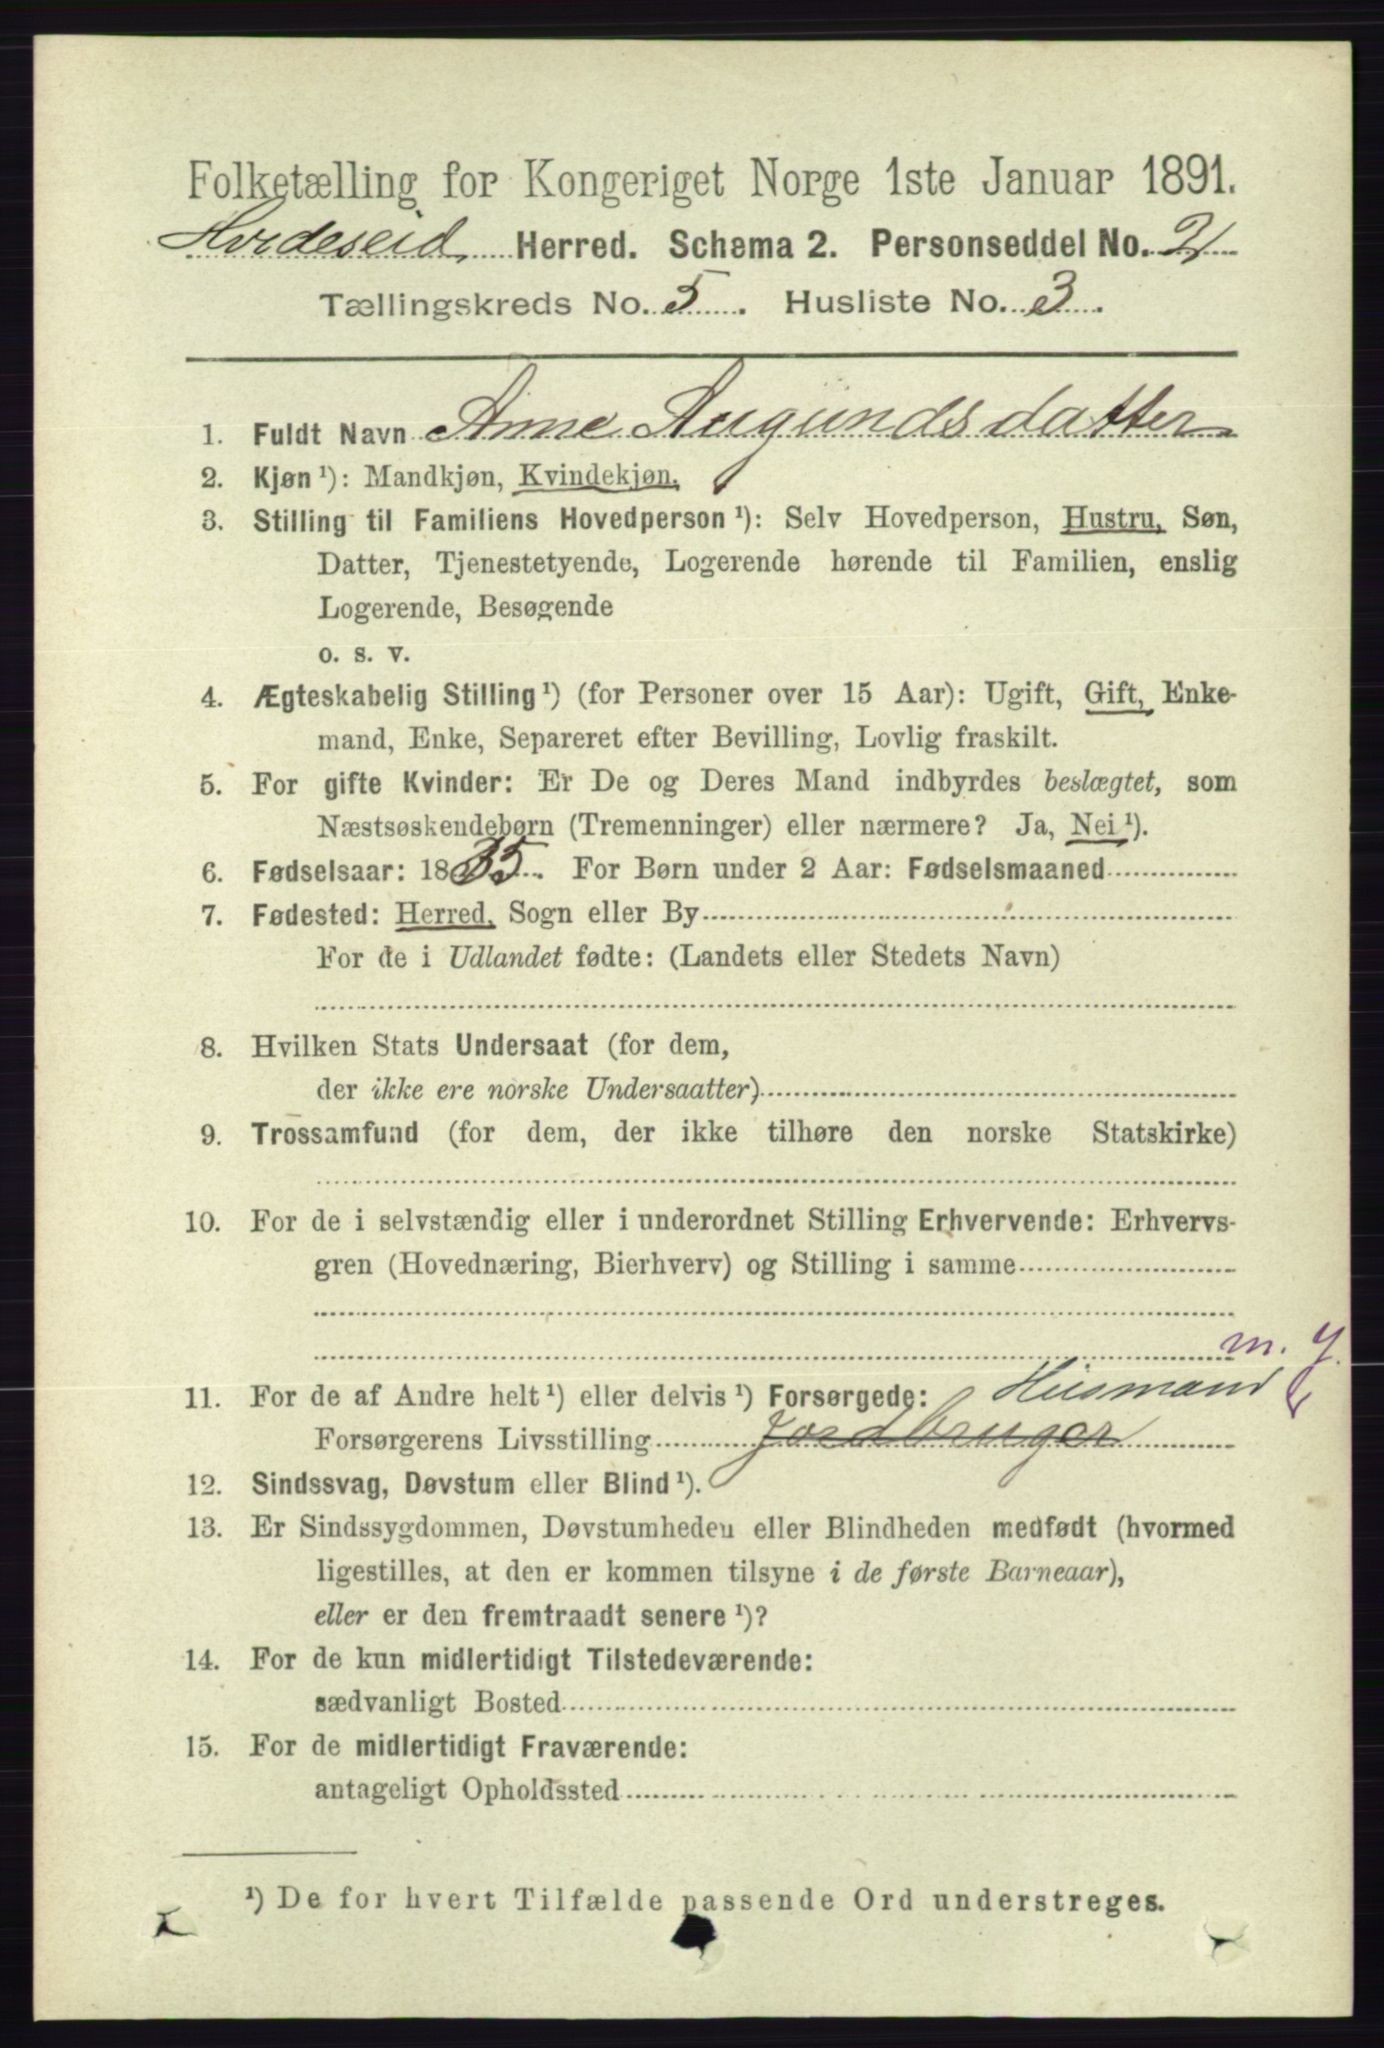 Folketælling for Kongeriget Norge 1ste Januar 1891.
Hvideseid Herred. Schema 2. Personseddel No. 2
Tællingskreds No. 5. Husliste No. 3.
1. Fuldt Navn Anne Augunds datter
2. Kjøn ¹): Mandkjøn, Kvindekjøn.
3. Stilling til Familiens Hovedperson ¹): Selv Hovedperson, Hustru, Søn,
Datter, Tjenestetyende, Logerende hørende til Familien, enslig
Logerende, Besøgende
o. s. v.
4. Ægteskabelig Stilling ¹) (for Personer over 15 Aar): Ugift, Gift, Enke-
mand, Enke, Separeret efter Bevilling, Lovlig fraskilt.
5. For gifte Kvinder: Er De og Deres Mand indbyrdes beslægtet, som
Næstsøskendebørn (Tremenninger) eller nærmere? Ja, Nei ¹).
6. Fødselsaar: 1835. For Børn under 2 Aar: Fødselsmaaned
7. Fødested: Herred, Sogn eller By
For de i Udlandet fødte: (Landets eller Stedets Navn)
8. Hvilken Stats Undersaat (for dem,
der ikke ere norske Undersaatter)
9. Trossamfund (for dem, der ikke tilhøre den norske Statskirke)
10. For de i selvstændig eller i underordnet Stilling Erhvervende: Erhvervs-
gren (Hovednæring, Bierhverv) og Stilling i samme
m. J.
11. For de af Andre helt ¹) eller delvis ¹) Forsørgede: Husmand
Forsørgerens Livsstilling Jordbruger
12. Sindssvag, Døvstum eller Blind ¹).
13. Er Sindssygdommen, Døvstumheden eller Blindheden medfødt (hvormed
ligestilles, at den er kommen tilsyne i de første Barneaar),
eller er den fremtraadt senere ¹)?
14. For de kun midlertidigt Tilstedeværende:
sædvanligt Bosted
15. For de midlertidigt Fraværende:
antageligt Opholdssted
¹) De for hvert Tilfælde passende Ord understreges.